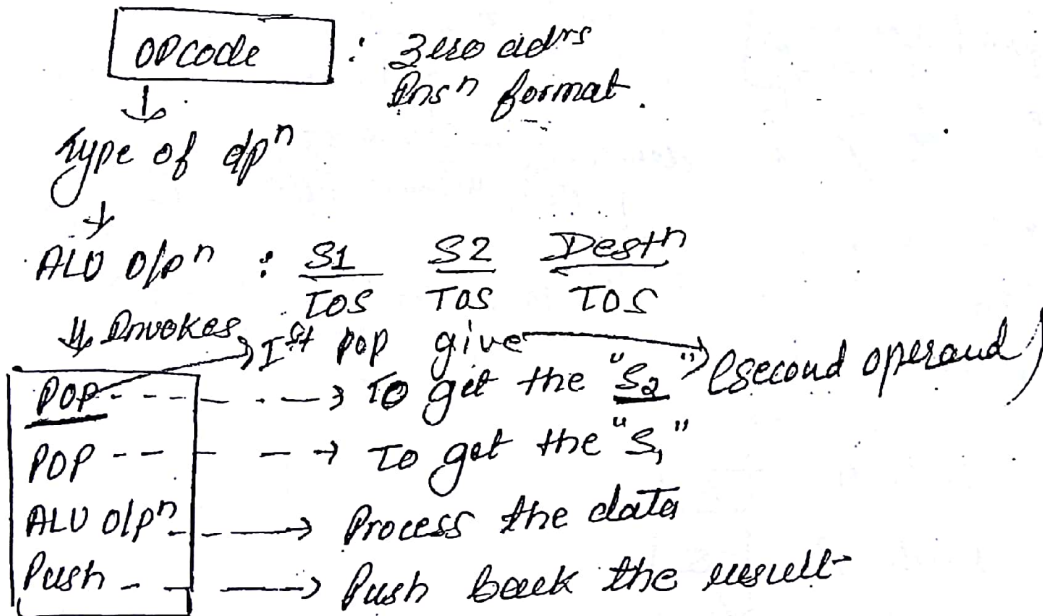 OPcode : Zero adrs
Insn format.
Type of opn
ALU o/pn : S1 S2 Destn
TOS TOS TOS
Invokes Ist POP give
POP To get the "S2" (second operand)
POP To get the "S1"
ALU o/pn Process the data
Push Push back the result